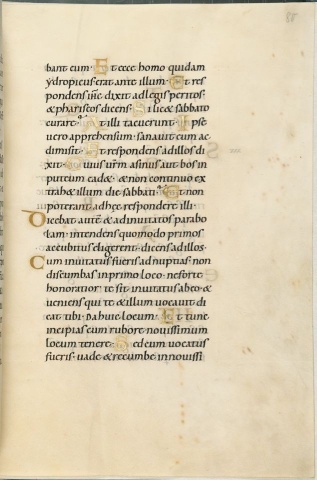 bant eum· Et ecce homo quidam
ydropicus erat ante illum· Et res
pondens iħc dixit ad legis peritos·
& phariseos dicens· Si licet sabbato
curare· At illi tacuerunt· Ipse
vero apprehensum· sanavit eum ac
dimisit· Et respondens ad illos di
xit· Cuius vr̄m asinus aut bos in
puteum cadet· & non continuo ex
trahet illum die sabbati· Et non
poterant ad hęc respondere illi·
Dicebat autē & ad invitatos parabo
lam· intendens quomodo primos
accubitus eligerent· dicens ad illos·
Cum invitatus fueris ad nuptias· non
discumbas in primo loco· ne forte
honoratior te sit invitatus ab eo· &
veniens qui te & illum vocavit di
cat tibi· Da huic locum· Et tunc
incipias cum rubore novissimum
locum tenere· Sed cum vocatus
fueris· vade & recumbe in novissi